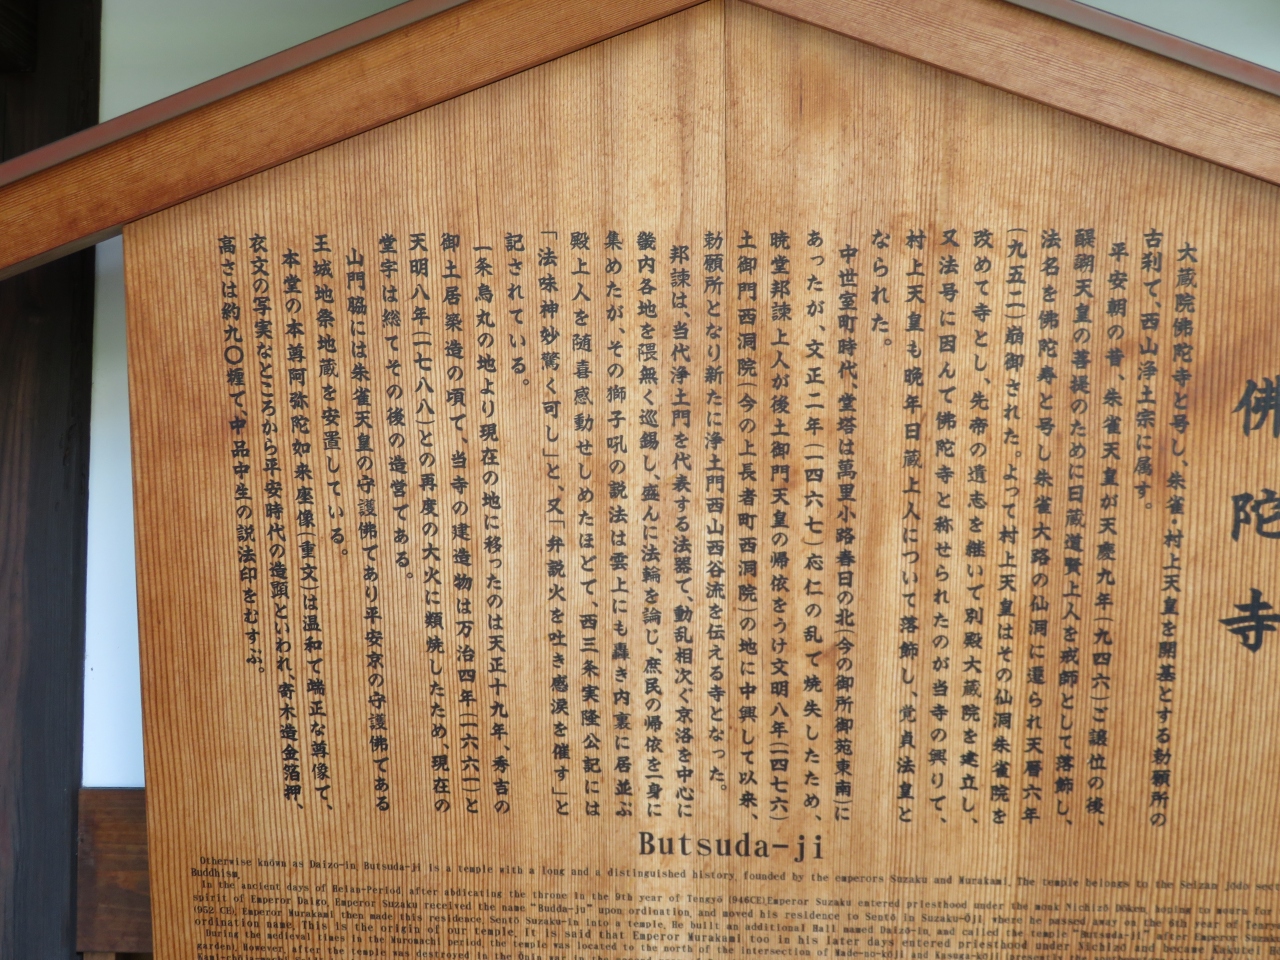 佛陀寺
大蔵院佛陀寺と号し、朱雀・村上天皇を開基とする勅願所の
古刹で、西山浄土宗に属す。
平安朝の昔、朱雀天皇が天慶九年(九四六)ご譲位の後、
醍醐天皇の菩提のために日蔵道賢上人を戒師として落飾し、
法名を佛陀寿と号し朱雀大路の仙洞に還られ天暦六年
(九五二)崩御された。よって村上天皇はその仙洞朱雀院を
改めて寺とし、先帝の遺志を継いで別殿大蔵院を建立し、
又法号に因んで佛陀寺と称せられたのが当寺の興りで、
村上天皇も晩年日蔵上人について落飾し、覚貞法皇と
なられた。
中世室町時代、堂塔は萬里小路春日の北(今の御所御苑東南)に
あったが、文正二年(一四六七)応仁の乱で焼失したため、
暁堂邦諌上人が後土御門天皇の帰依をうけ文明八年(一四七六)
土御門西洞院(今の上長者町西洞院)の地に中興して以来、
勅願所となり新たに浄土門西山西谷流を伝える寺となった。
邦諌は、当代浄土門を代表する法器で、動乱相次ぐ京洛を中心に
畿内各地を隈無く巡錫し、盛んに法輪を論じ、庶民の帰依を一身に
集めたが、その獅子吼の説法は雲上にも轟き内裏に居並ぶ
殿上人を随喜感動せしめたほどで、西三条実隆公記には
「法味神妙驚く可し」と、又「弁説火を吐き感涙を催す」と
記されている。
一条烏丸の地より現在の地に移ったのは天正十九年、秀吉の
御土居築造の頃で、当寺の建造物は万治四年(一六六一)と
天明八年(一七八八)との再度の大火に類焼したため、現在の
堂宇は総てその後の造営である。
山門脇には朱雀天皇の守護佛であり平安京の守護佛である
王城地祭地蔵を安置している。
本堂の本尊阿弥陀如来座像(重文)は温和で端正な尊像で、
衣文の写実なところから平安時代の造顕といわれ、寄木造金箔押、
高さは約九〇糎で、中品中生の説法印をむすぶ。
Butsuda-ji
Otherwise known as Daizo-in Butsuda-ji is a temple with a long and a distinguished history, founded by the emperors Suzaku and Murakami. The temple belongs to the Seizan jodo sect
Buddhism.
In the ancient days of Heian-Period after abdicating the throne in the 9th year of Tengyō (946CE), Emperor Suzaku entered priesthood under the monk Nichizō Dōken, hoping to mourn for
spirit of Emperor Daigo. Emperor Suzaku received the name "Budda-ju" upon ordination, and moved his residence to Sentō in Suzaku-Ōji where he passed away in the 6th year of
(952 CE). Emperor Murakami then made this residence, Sentō Suzaku-in into a temple. He built an additional Hall named Daizō-in, and called the temple "Butsuda-ji" after Emperor
ordination name. This is the origin of our temple. It is said that Emperor Murakami too in his later days entered priesthood under Nichizō and became Kakutei
During the medieval times in the Muromachi period, the temple was located to the north of the intersection of Made-no-kōji and Kasuga-kōji
garden. However, after the temple was destroyed in the Ōnin war in the